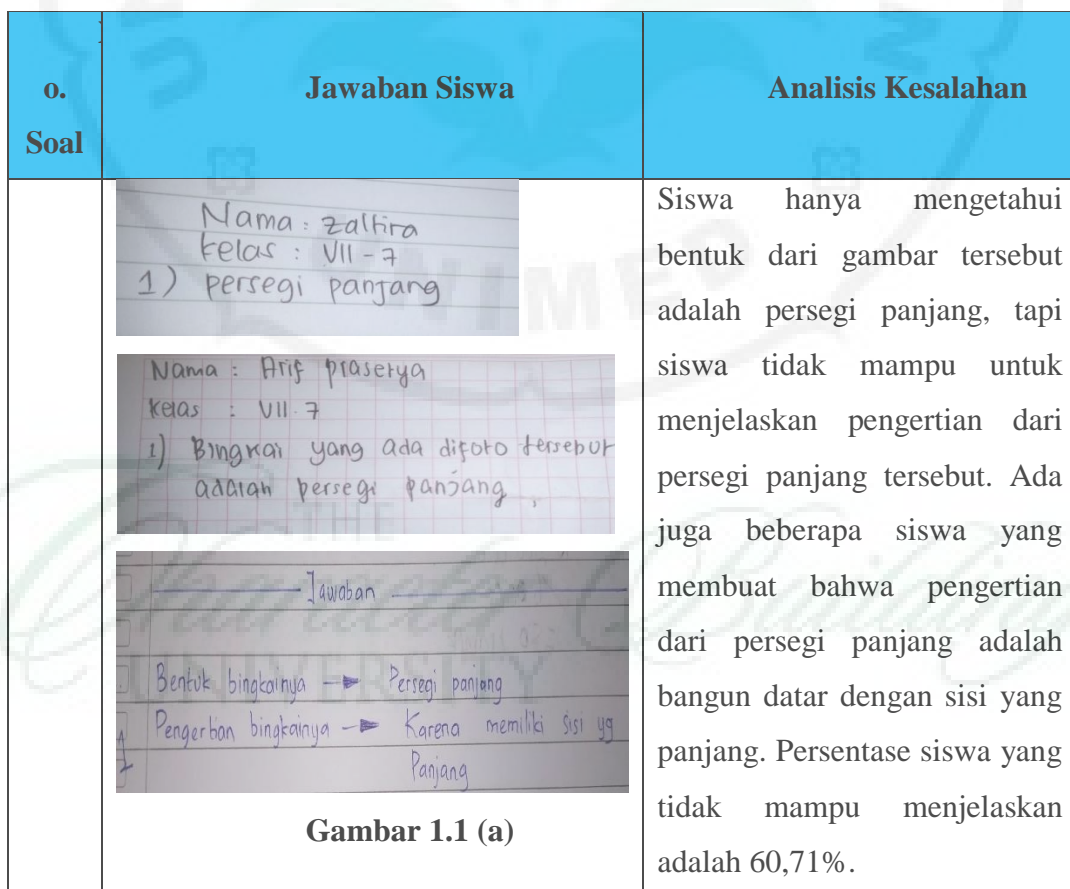 o.
Soal
Jawaban Siswa
Analisis Kesalahan
Nama : Zalfira
Kelas : VII - 7
1) persegi panjang
Nama : Arif prasetya
Kelas : VII. 7
1) Bingkai yang ada difoto tersebut
adalah persegi panjang,
Jawaban
Bentuk bingkainya → Persegi panjang
Pengertian bingkainya → Karena memiliki sisi yg
Panjang
Gambar 1.1 (a)
Siswa hanya mengetahui
bentuk dari gambar tersebut
adalah persegi panjang, tapi
siswa tidak mampu untuk
menjelaskan pengertian dari
persegi panjang tersebut. Ada
juga beberapa siswa yang
membuat bahwa pengertian
dari persegi panjang adalah
bangun datar dengan sisi yang
panjang. Persentase siswa yang
tidak mampu menjelaskan
adalah 60,71%.
UNIMED
THE
Character Building
UNIVERSITY